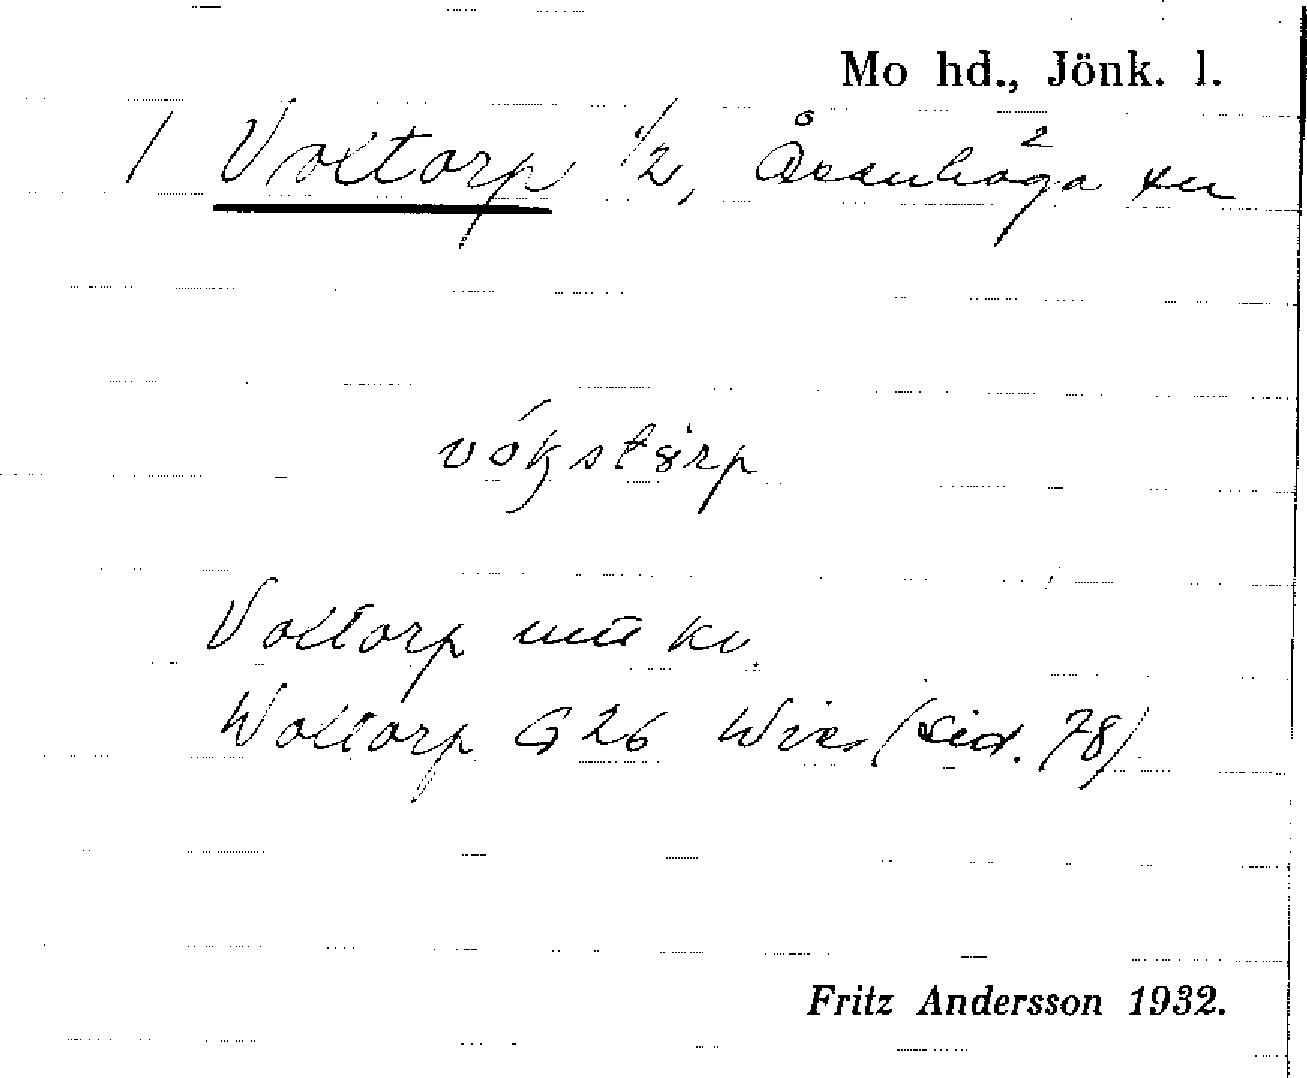 Mo hd., Jönk. l.
1 Voxtorp 1/2, Åsenhöga sn
Voxtorp
Woxtorp G 26 Wies (sid. 78)
Fritz Andersson 1932.